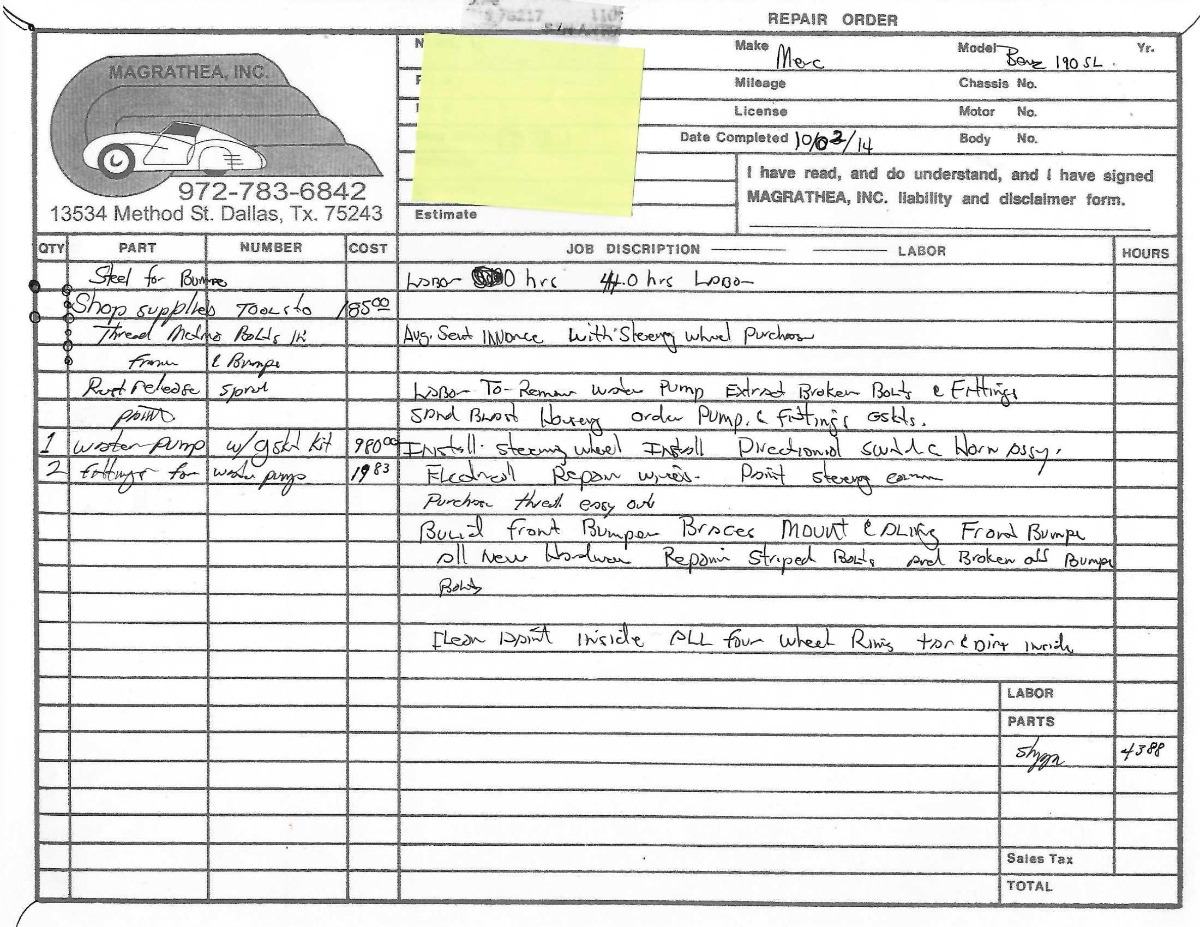 REPAIR ORDER
MAGRATHEA, INC.
972-783-6842
13534 Method St. Dallas, Tx. 75243
Make Merc Model Benz 190 SL. Yr.
Mileage Chassis No.
License Motor No.
Date Completed 10/03/14 Body No.
Estimate
I have read, and do understand, and I have signed
MAGRATHEA, INC. liability and disclaimer form.
QTY PART NUMBER COST JOB DISCRIPTION LABOR HOURS
Steel for Bumper Labor 0 hrs 44.0 hrs Labor
Shop supplies Tools to 185.00
Thread Metric Bolts in Aug. Sent Invonce With Steering wheel Purchase
Frame & Bumper
Rust release Labor To Remove water Pump Extract Broken Bolts & Fittings
paint Sand Blast Housing order Pump. & fittings Gskts.
1 water pump w/gskt kit 980.00 Install steering wheel Install Directional Horn Assy.
2 fittings for water pump 19.83 Electrical Repair wires. Paint steering
Purchase thread easy outs
Build front Bumper Braces Mount & Aling Front Bumper
All New Hardware Repair Striped Bolts and Broken off Bumper
Bolts
Clean paint inside ALL four wheel Rims tar & Dirt inside
LABOR
PARTS
4388
Sales Tax
TOTAL